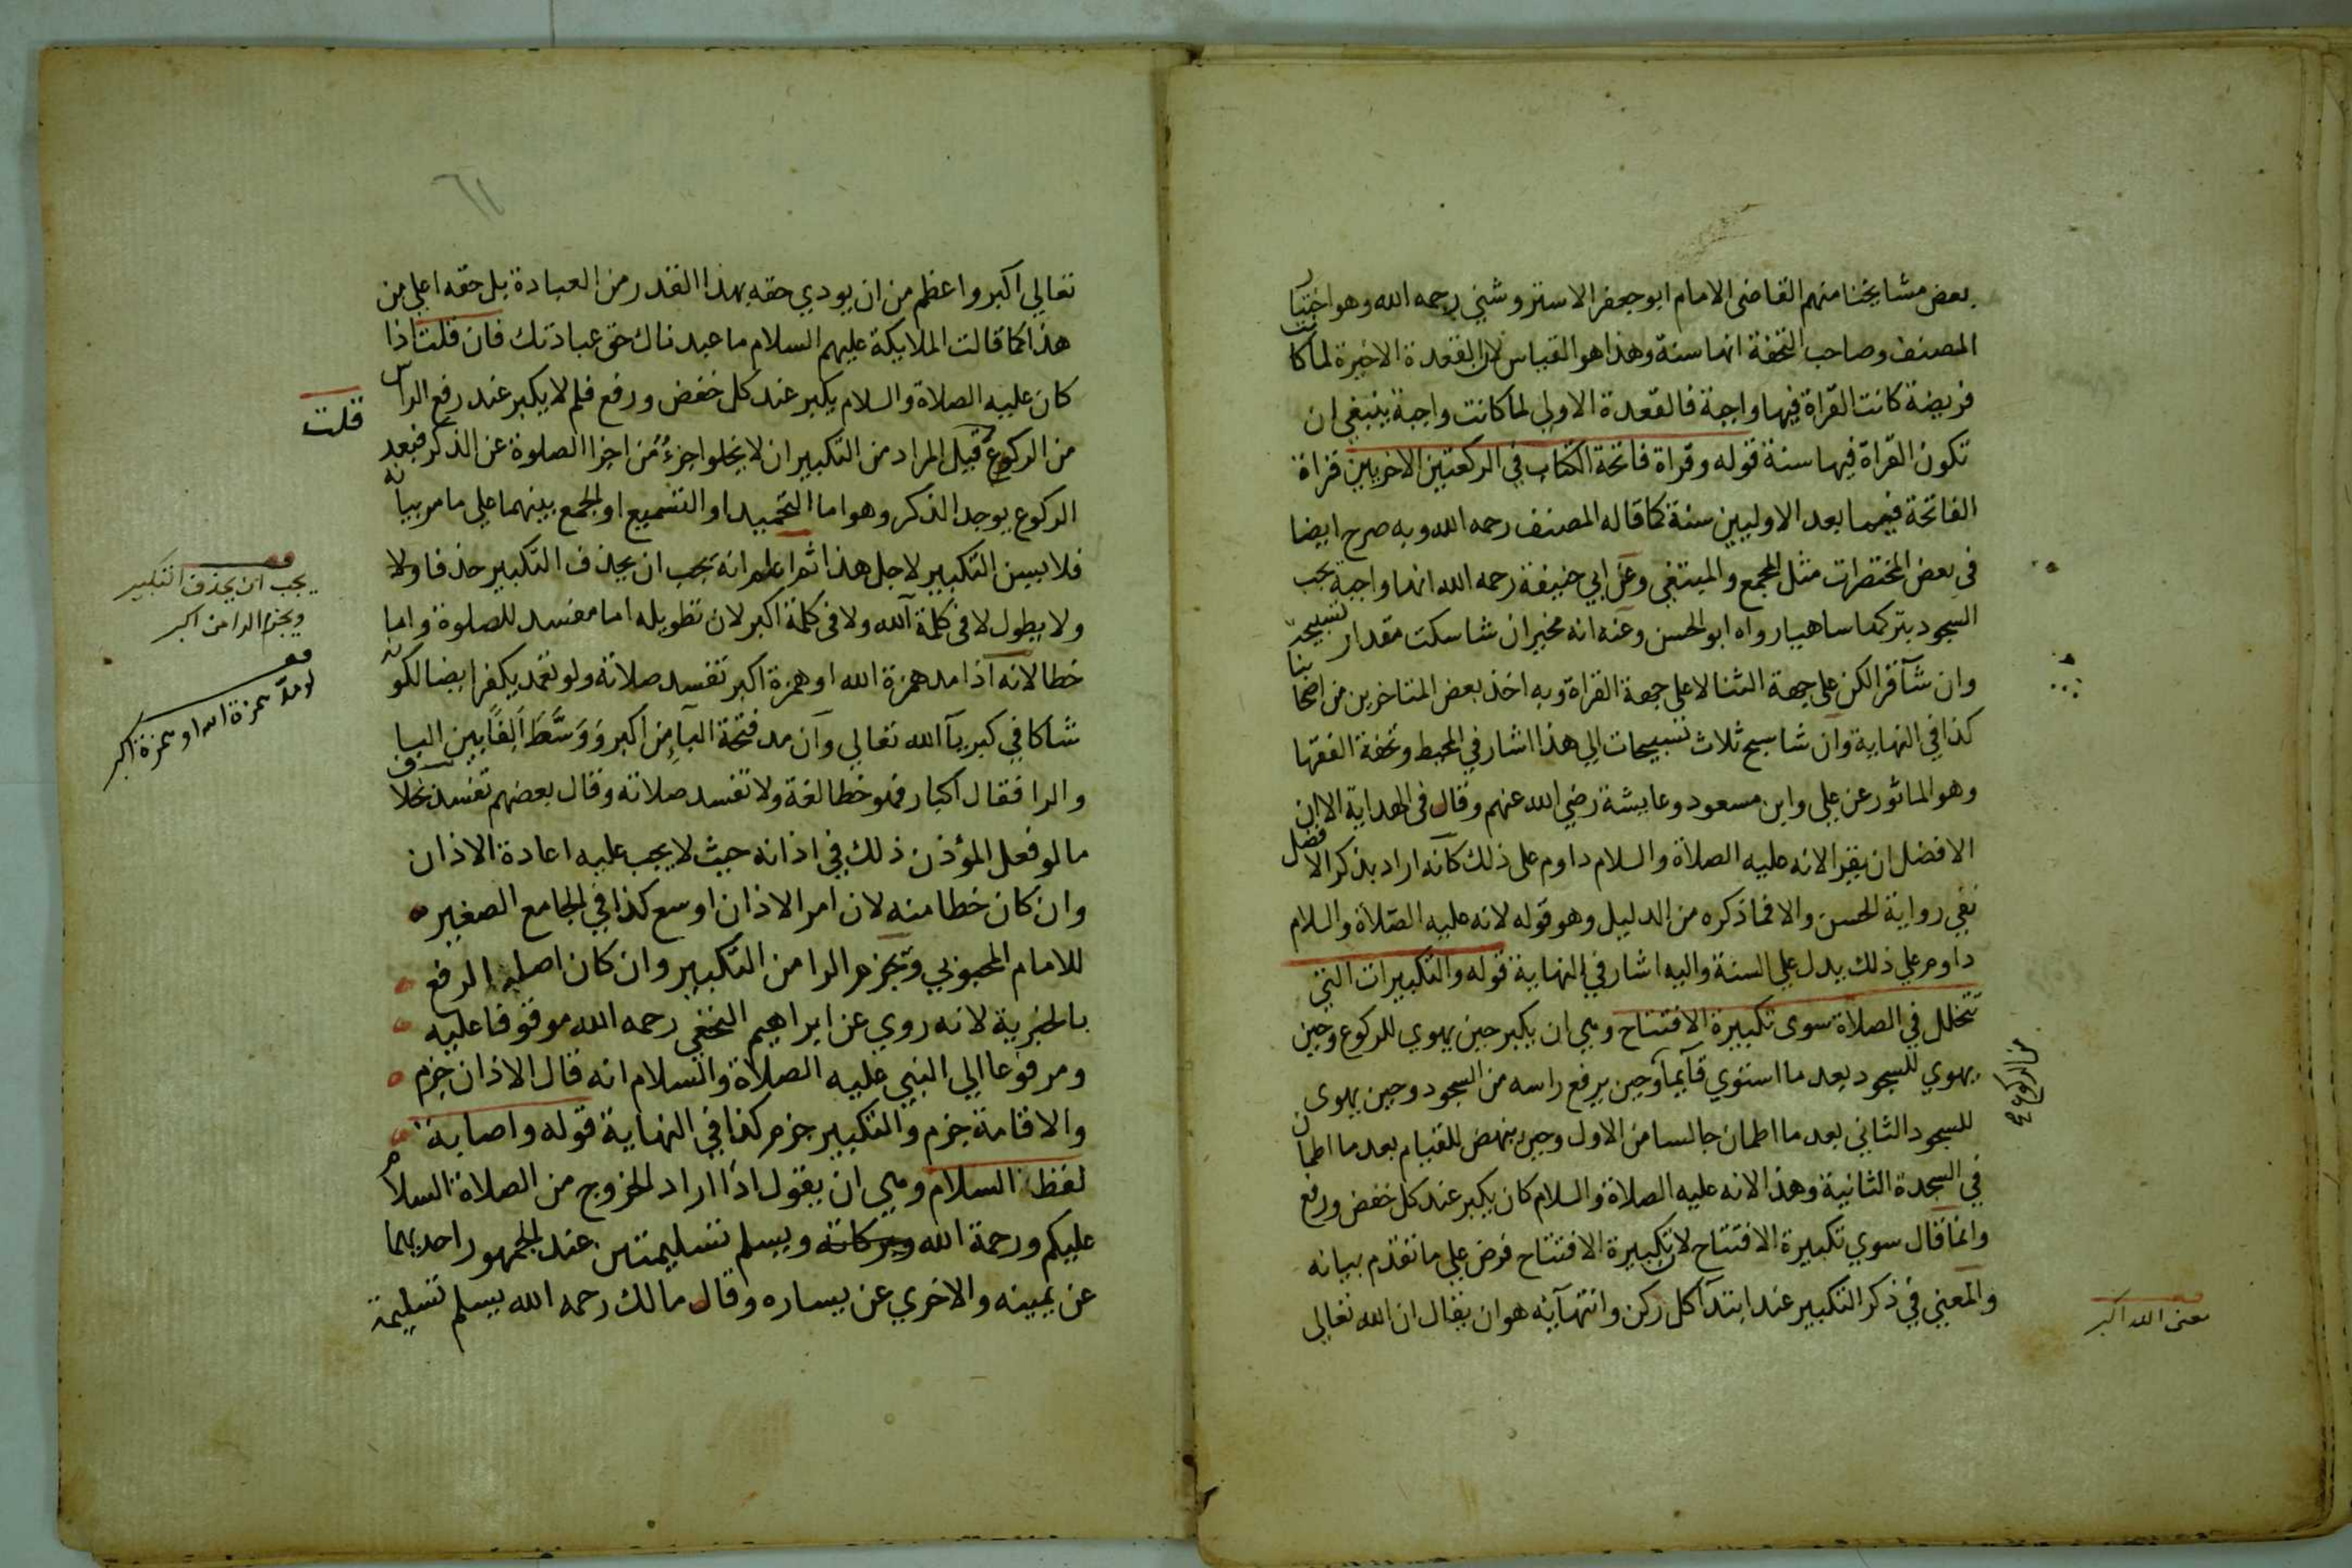 بعض مشايخنا منهم القاضى الامام ابو جعفر الاستروشني رحمه الله وهو اختيار
المصنف وصاحب التحفة انها سنة وهذا هو القياس لان القعدة الاخيرة لما كانت
فريضة كانت القراة فيها واجبة فالقعدة الاولى لما كانت واجبة ينبغي ان
تكون القراة فيها سنة قوله وقراة فاتحة الكتاب في الركعتين الاخريين قراة
الفاتحة فيما بعد الاوليين سنة كما قاله المصنف رحمه الله وبه صرح ايضا
في بعض المختصرات مثل المجمع والمبتغي وعن ابي حنيفة رحمه الله انها واجبة يجب
السجود بتركها ساهيا رواه ابو الحسن وعنه انه مخير ان شا سكت مقدار تسبيحة
وان شآ قرا لكن على جهة الثنا لا على جهة القراة وبه اخذ بعض المتاخرين من اصحابنا
كذا في النهاية وان شا سبح ثلاث تسبيحات الي هذا اشار في المحيط وتحفة الفقها
وهو الماثور عن علي وابن مسعود وعايشة رضي الله عنهم وقال فى الهداية الا ان
الافضل ان يقرا لانه عليه الصلاة والسلام داوم على ذلك كانه اراد بذكر الافضل
نفي رواية الحسن والا فما ذكره من الدليل وهو قوله لانه عليه الصلاة والسلام
داوم علي ذلك يدل علي السنة واليه اشار في النهاية قوله والتكبيرات التي
تتخلل في الصلاة سوى تكبيرة الافتتاح وهي ان يكبر حين يهوي للركوع وحين
يهوي للسجود بعد ما استوي قآيما وحين يرفع راسه من السجود وحين يهوى
للسجود الثاني بعد ما اطمان جالسا من الاول وحين ينهض للقيام بعد ما اطمان
في السجدة الثانية وهذا لانه عليه الصلاة والسلام كان يكبر عند كل خفض ورفع
وانما قال سوي تكبيرة الافتتاح لان تكبيرة الافتتاح فرض علي ما تقدم بيانه
والمعني في ذكر التكبير عند ابتدآ كل ركن وانتهآيه هو ان يقال ان الله تعالى
معنى الله اكبر
تعالي اكبر واعظم من ان يودي حقه بهذا القدر من العبادة بل حقه اعلي من
هذا كما قالت الملايكة عليهم السلام ما عبدناك حق عبادتك فان قلت اذا
كان عليه الصلاة والسلام يكبر عند كل خفض ورفع فلم لا يكبر عند رفع الراس
قلت
من الركوع قيل المراد من التكبير ان لا يخلوا جزءُ من اجزا الصلوة عن الذكر فبعد
الركوع يوجد الذكر وهو اما التحميد او التسميع او الجمع بينهما علي ما مر بيانه
فلا يسن التكبير لاجل هذا ثم اعلم انه يجب ان يحذف التكبير حذفا ولا
ولا يطول لا فى كلمة آلله ولا فى كلمة اكبر لان تطويله اما مفسد للصلوة واما
خطا لانه اذا مد همزة الله او همزة اكبر تفسد صلاته ولو تعمد يكفر ايضا لكونه
شاكا في كبريآ الله تعالي وان مد فتحة البآ من اكبر وَوَسَّطَ اَلِفًا بين البا
والرا فقال اكبار فهو خطا لغة ولا تفسد صلاته وقال بعضهم تفسد بخلاف
ما لو فعل المؤذن ذلك في اذانه حيث لا يجب عليه اعادة الاذان
وان كان خطا منه لان امر الاذان اوسع كذا في الجامع الصغير
للامام المحبوبي ويجزم الرا من التكبير وان كان اصله الرفع
بالخبرية لانه روي عن ابراهيم النخعي رحمه الله موقوفا عليه
ومرفوعا الي النبي عليه الصلاة والسلام انه قال الاذان جزم
والاقامة جزم والتكبير جزم كذا في النهاية قوله واصابة
لفظة السلام وهي ان يقول اذا اراد الخروج من الصلاة السلام
عليكم ورحمة الله وبركاته ويسلم تسليمتين عند الجمهور احديهما
عن يمينه والاخري عن يساره وقال مالك رحمه الله يسلم تسليمة
يجب ان يحذف التكبير
ويجزم الرا من اكبر
لو مد همزة الله او همزة اكبر
١٦